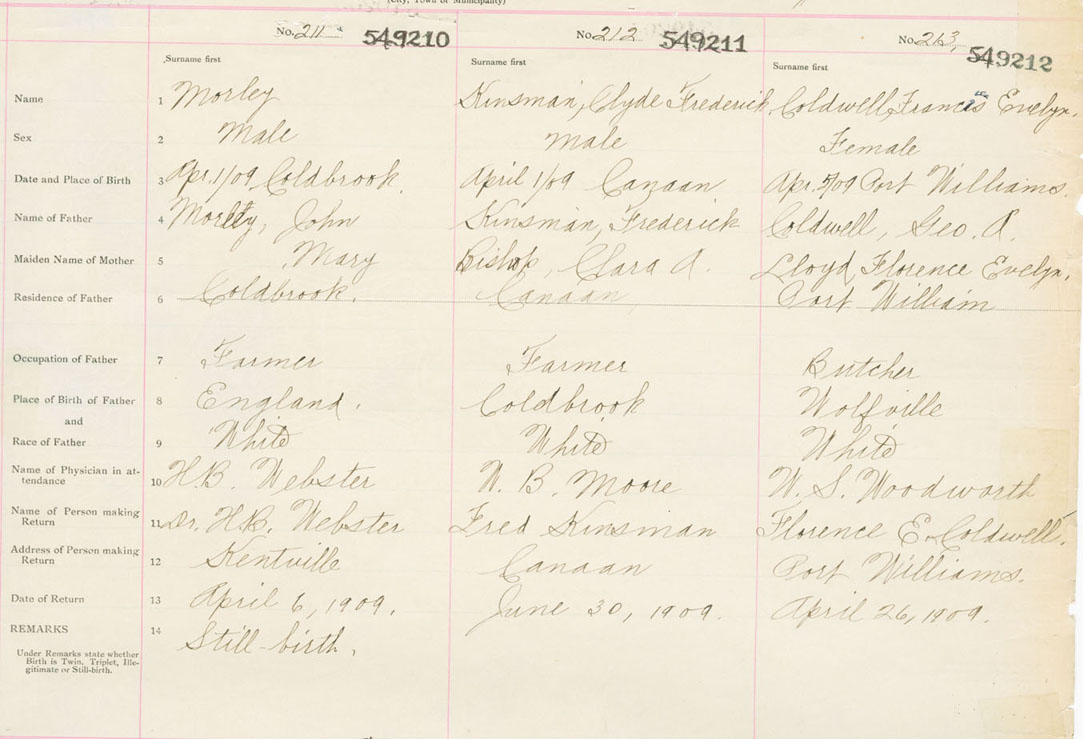 (City, Town or Municipality)
No. 211 549210 No. 212 549211 No. 213, 549212
Surname first Surname first Surname first
Name 1 Morley Kinsman, Clyde Frederick, Coldwell, Francis Evelyn.
Sex 2 Male Male Female
Date and Place of Birth 3 Apr. 1/09 Coldbrook. April 1/09 Canaan Apr. 5/09 Port Williams.
Name of Father 4 Morley, John Kinsman, Frederick Coldwell, Geo. A.
Maiden Name of Mother 5 , Mary Bishop, Clara A. Lloyd, Florence Evelyn.
Residence of Father 6 Coldbrook. Canaan Port William
Occupation of Father 7 Farmer Farmer Butcher
Place of Birth of Father 8 England. Coldbrook Wolfville
and
Race of Father 9 White White White
Name of Physician in at-
tendance 10 H.B. Webster W. B. Moore W. S. Woodworth
Name of Person making
Return 11 Dr. H.B. Webster Fred Kinsman Florence E. Coldwell.
Address of Person making
Return 12 Kentville Canaan Port Williams.
Date of Return 13 April 6, 1909. June 30, 1909. April 26, 1909.
REMARKS 14 Still-birth.
Under Remarks state whether
Birth is Twin, Triplet, Ille-
gitimate or Still-birth.